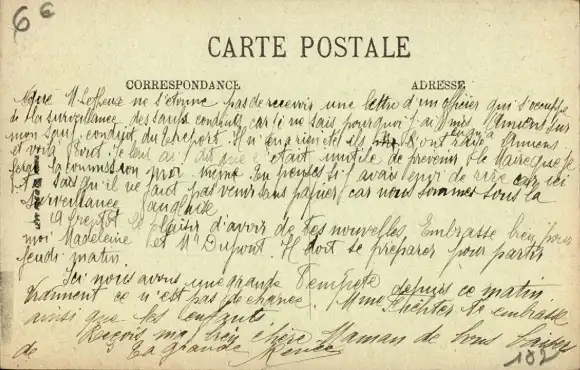 6 c
CARTE POSTALE
CORRESPONDANCE
ADRESSE
que M ne s'étonne pas de recevoir une lettre d'un officier qui s'occupe
de la surveillance des sauf conduits car je ne sais pourquoi j'ai mis Amiens sur
mon sauf conduit du Tréport. Il n'en a rien été ils ont rayé Amiens
et voilà je leur ai dit que c'était inutile de prévenir le Maire que je
ferai la commission moi même. Tu penses si j'avais envie de rire car ici
sais qu'il ne faut pas venir sans papier car nous sommes sous la
surveillance anglaise
A bientôt le plaisir d'avoir de tes nouvelles. Embrasse bien pour
moi Madeleine et Mr Dupont. Il doit se préparer pour partir
jeudi matin
Ici nous avons une grande Tempête depuis ce matin
vraiment ce n'est pas de chance. Mme t'embrasse
ainsi que les enfants
Reçois ma bien chère Maman de bons baisers
de ta grande Renée
102